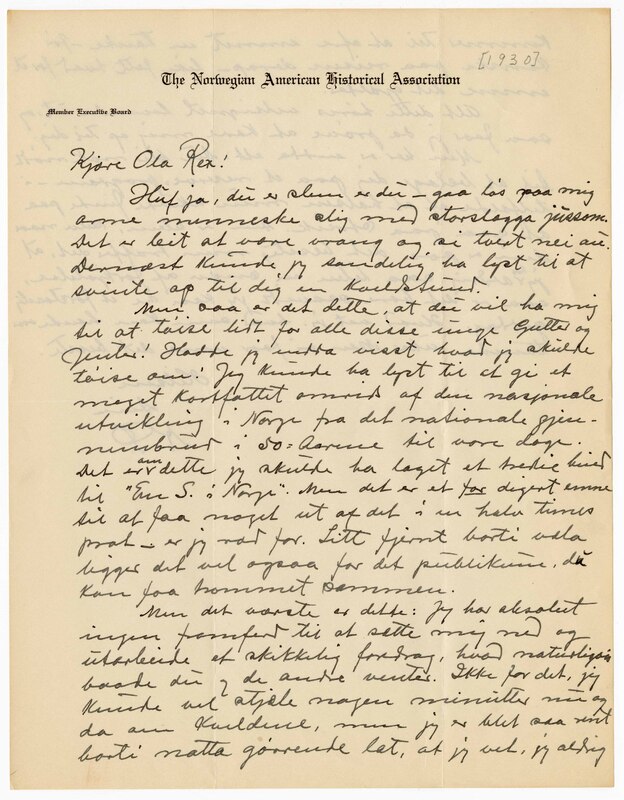 [1930]
The Norwegian American Historical Association
Member Executive Board
Kjøre Ola Rex!
Huf ja, du er slem er du — gaa lös paa mig
arme menneske slig med storslagga jussom.
Det er leit at være vrang og si tvert nei au.
Dernæst kunde jeg sandelig ha lyst til at
svinte op til dig en kveldstund.
Men saa er det dette, at du vil ha mig
til at tøise lidt for alle disse unge Gutter og
Jenter! Hadde jeg endda visst hvad jeg skulde
tøise om! Jeg kunde ha lyst til at gi et
meget kortfattet omrids af den nasjonale
utvikling i Norge fra det nationale gjen-
nembrud i 50-Aarene til vore dage.
Det er om dette jeg skulde ha laget et tredie bind
til "Em S. i Norge". Men det er et for digert emne
til at faa noget ut af det i en halv times
prat — er jeg ræd for. Litt fjernt borti
ligger det vel ogsaa for det publikum, du
kan faa trommet sammen.
Men det værste er dette: Jeg har absolut
ingen framferd til at sætte mig ned og
utarbeide et skikkelig foredrag, hvad naturligvis
baade du og de andre venter. Ikke for det, jeg
kunde vel stjæle nogen minutter nu og
da om kveldene, men jeg er blet saa rent
borti natta gørrende lat, at jeg vet, jeg aldrig